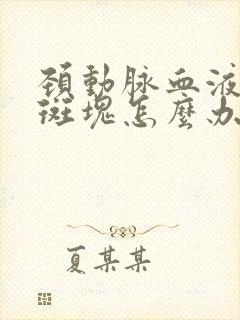 頚動脉血液
斑塊怎麼办
夏某某